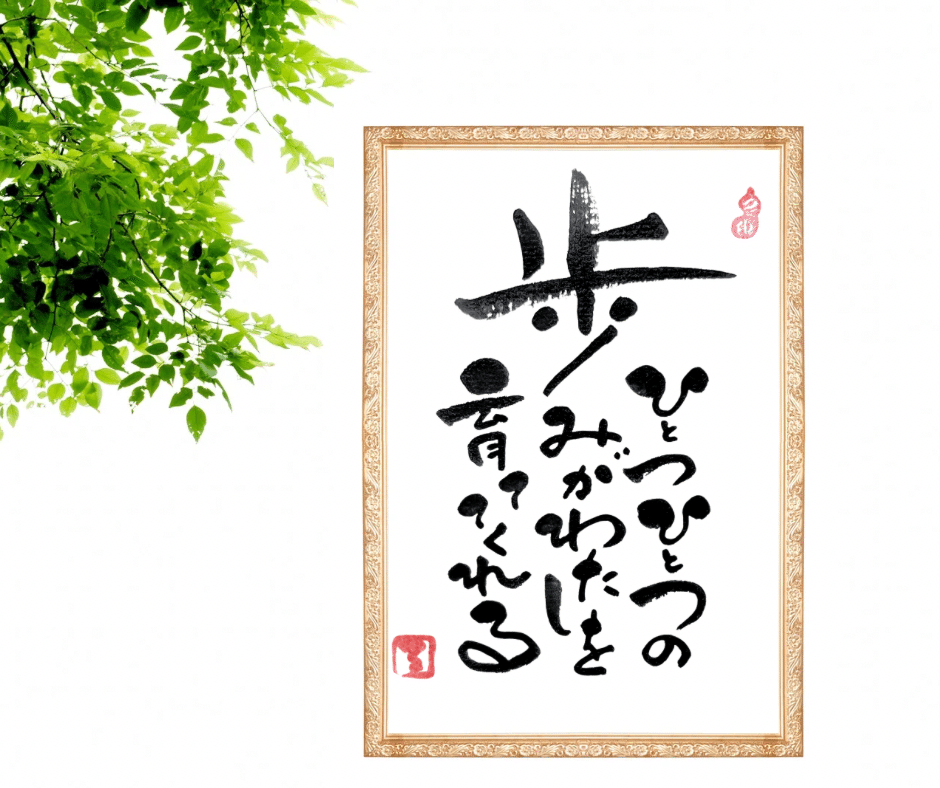 ひとつひとつの
歩みがわたしを
育ててくれる